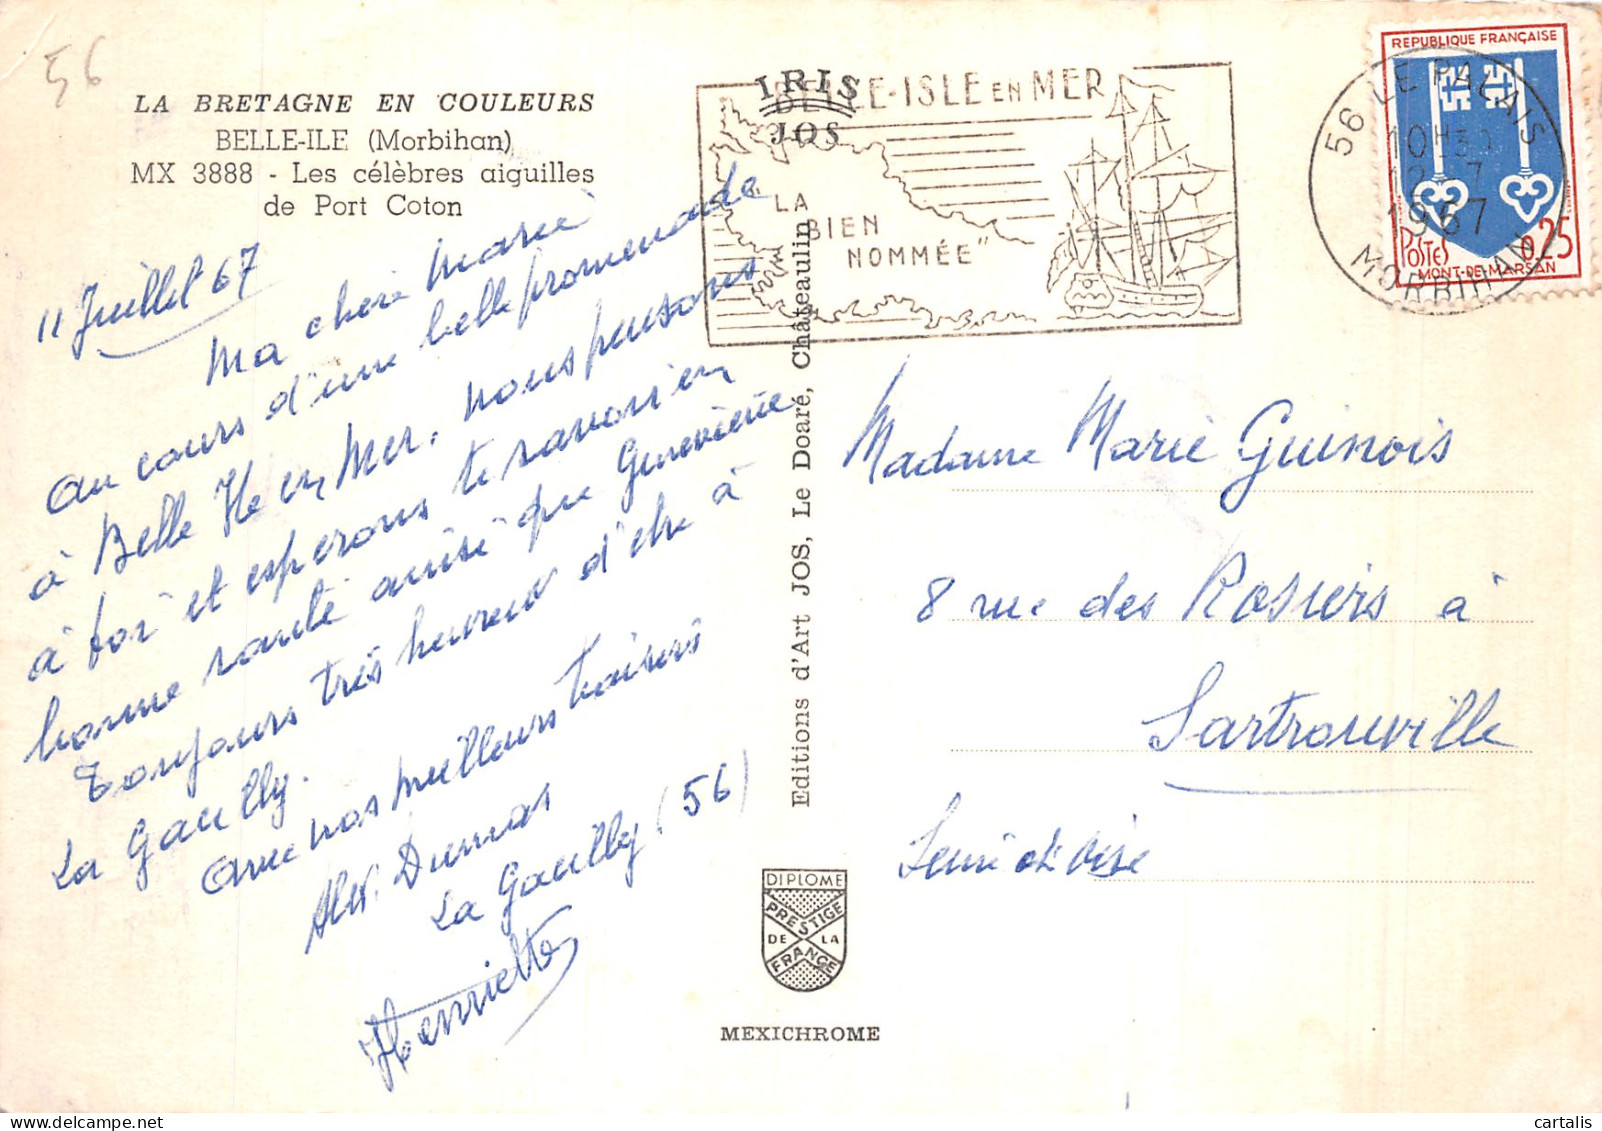 56
LA BRETAGNE EN COULEURS
BELLE-ILE (Morbihan)
MX 3888 - Les célèbres aiguilles
de Port Coton
IRIS
JOS
BELLE-ISLE EN MER
"LA
BIEN
NOMMÉE"
REPUBLIQUE FRANÇAISE
POSTES
0,25
MONT-DE-MARSAN
56 LE PALAIS
10H30
12-7
1967
MORBIHAN
11 Juillet 67
Ma chère Marie
au cours d'une belle promenade
à Belle Ile en Mer, nous pensons
à toi et esperons te savoir en
bonne santé ainsi que Geneviève
Toujours très heureux d'être à
La Gacilly.
avec nos meilleurs baisers
Alex. Dumas
La Gacilly (56)
Henriette
Editions d'Art JOS, Le Doaré, Châteaulin
Madame Marie Guinois
8 rue des Rosiers à
Sartrouville
Seine et Oise
DIPLOME
PRESTIGE
DE LA
FRANCE
MEXICHROME
cartalis